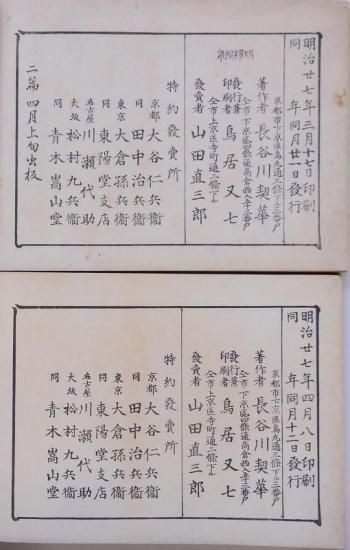 明治廿七年三月十七日印刷
同年同月廿一日發行
京都市下京區烏丸通三條下ル二番戸
著作者 長谷川契華
仝市下京區
發行兼印刷者 鳥居又七
仝市上京區寺町通二條下ル
發賣者 山田直三郎
特約發賣所
京都 大谷仁兵衞
同 田中治兵衞
東京 大倉孫兵衞
同 東陽堂支店
名古屋 川瀬代助
大坂 松村九兵衞
同 青木嵩山堂
二篇四月上旬出板
明治廿七年四月八日印刷
同年同月十二日發行
京都市下京區烏丸通三條下ル二番戸
著作者 長谷川契華
仝市下京區
發行兼印刷者 鳥居又七
仝市上京區寺町通二條下ル
發賣者 山田直三郎
特約發賣所
京都 大谷仁兵衞
同 田中治兵衞
東京 大倉孫兵衞
同 東陽堂支店
名古屋 川瀬代助
大坂 松村九兵衞
同 青木嵩山堂